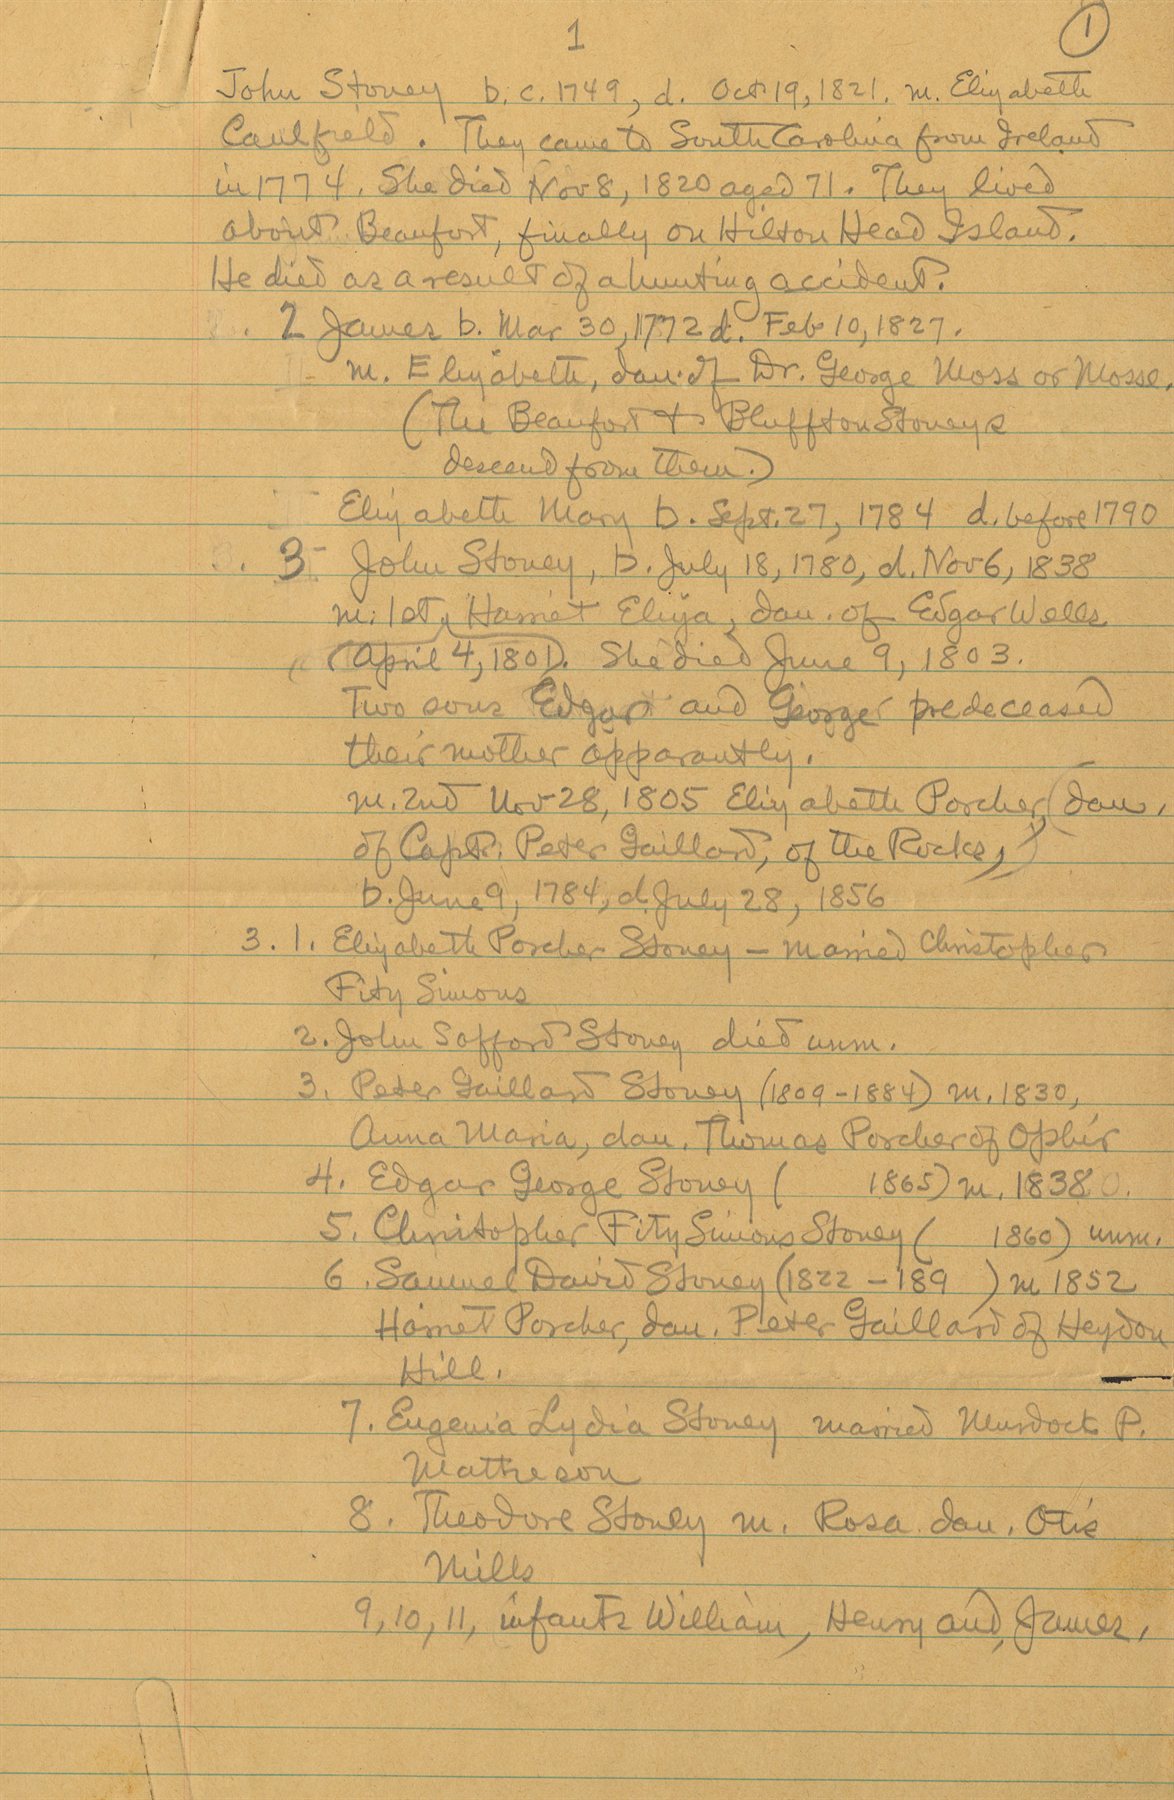 1 1
John Stoney b. c. 1749, d. Oct 19, 1821. m. Elizabeth
Caulfield. They came to South Carolina from Ireland
in 1774. She died Nov 8, 1820 aged 71. They lived
about Beaufort, finally on Hilton Head Island.
He died as a result of a hunting accident.
2 James b. Mar 30, 1772 d. Feb 10, 1827.
m. Elizabeth, dau. of Dr. George Moss or Mosse.
(The Beaufort & Bluffton Stoneys
descend from them.)
Elizabeth Mary b. Sept. 27, 1784 d. before 1790
3 John Stoney, b. July 18, 1780, d. Nov 6, 1838
m. 1st, Harriet Eliza, dau. of Edgar Wells
(April 4, 1801). She died June 9, 1803.
Two sons Edgar and George predeceased
their mother apparantly.
m. 2nd Nov 28, 1805 Elizabeth Porcher, (dau.
of Capt. Peter Gaillard, of the Rocks,)
b. June 9, 1784, d. July 28, 1856
3. 1. Elizabeth Porcher Stoney – married Christopher
Fitz Simons
2. John Safford Stoney died unm.
3. Peter Gaillard Stoney (1809–1884) m. 1830,
Anna Maria, dau. Thomas Porcher of Ophir
4. Edgar George Stoney ( 1865) m. 1838
5. Christopher Fitz Simons Stoney ( 1860) unm.
6. Samuel David Stoney (1822 – 189 ) m 1852
Harriet Porcher, dau. Peter Gaillard of Heydon
Hill.
7. Eugenia Lydia Stoney married Murdock P.
Matheson
8. Theodore Stoney m. Rosa dau. Otis
Mills
9, 10, 11, infants William, Henry and James.